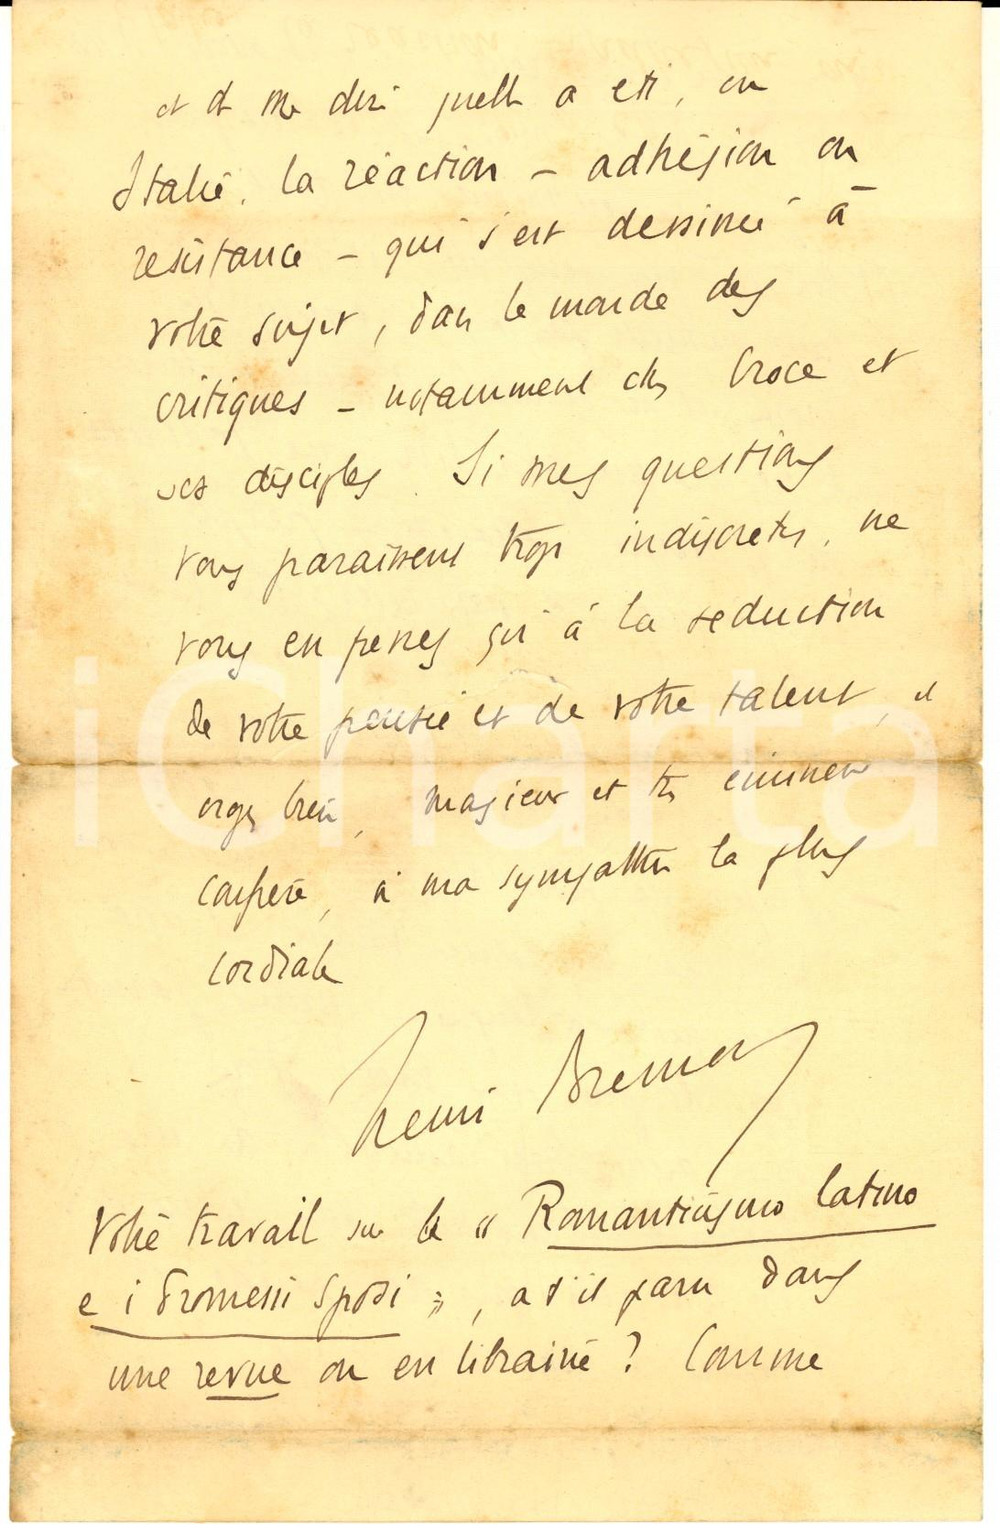 et de me dire quelle a été, en
Italie, la réaction – adhésion ou
resistance – qui s'est dessinée à
votre sujet, dans le monde des
critiques – notamment chez Croce et
ses disciples. Si mes questions
vous paraissent trop indiscretes, ne
vous en prenez qu'à la seduction
de votre pensée et de votre talent, et
croyez bien, monsieur et très eminent
confrère, à ma sympathie la plus
cordiale
Henri Bremond
Votre travail sur le « Romanticismo latino
e i Promessi Sposi », a t'il paru dans
une revue ou en librairie ? Comme
iCharta